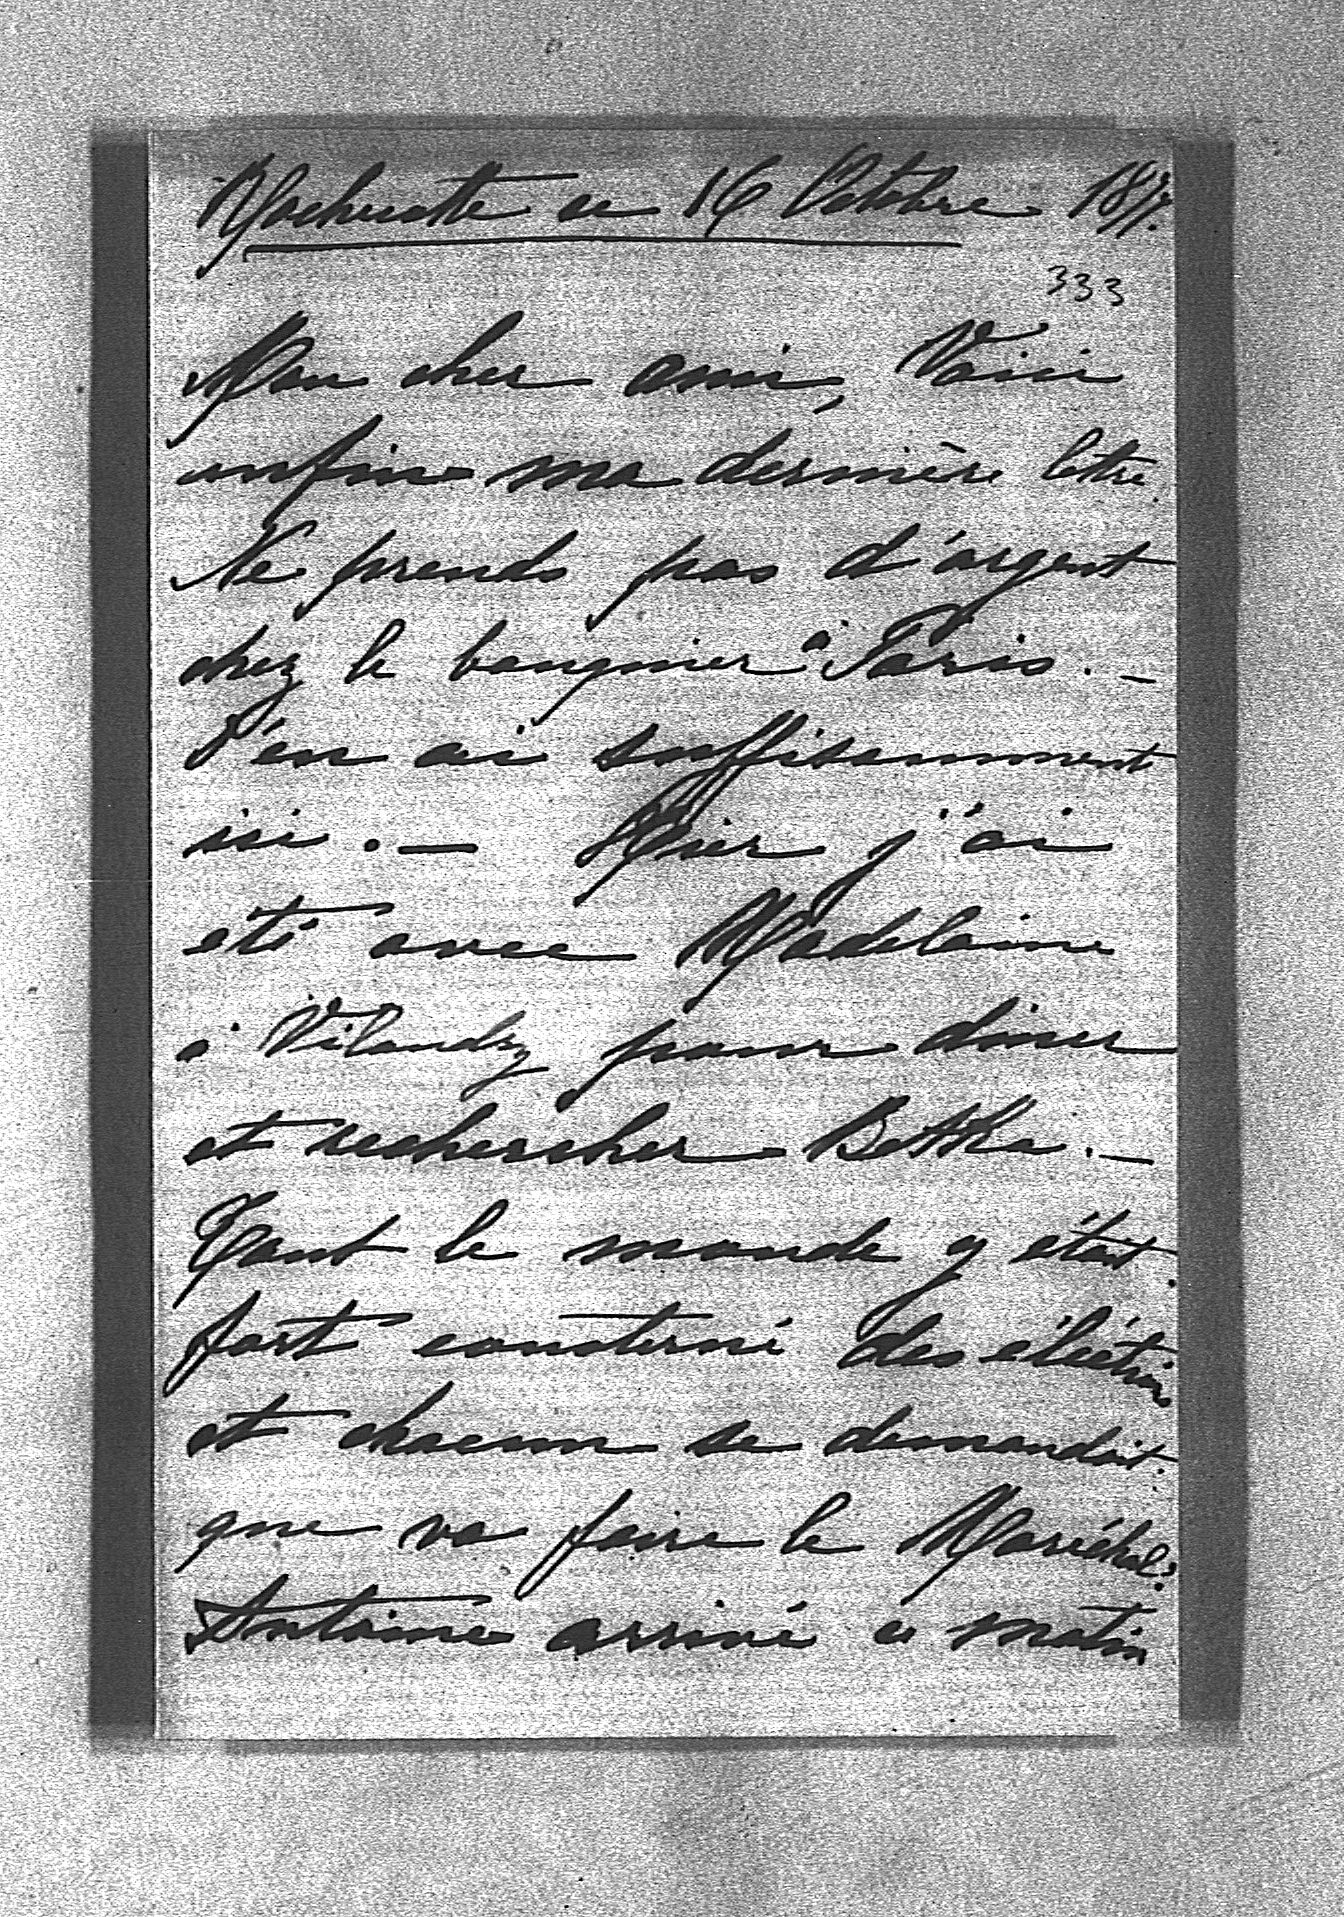 Rochecotte ce 16 Octobre 1877.
333
Mon cher ami, Voici
enfin ma dernière lettre.
Ne prends pas d'argent
chez le banquier à Paris. —
J'en ai suffisamment
ici. — Hier j'ai
eté avec Madelaine
à Vilandry pour diner
et rechercher Betka. —
Tout le monde y était
fort consterné des élections
et chacun se demandait.
que va faire le Maréchal?
Antoine arrivé ce matin